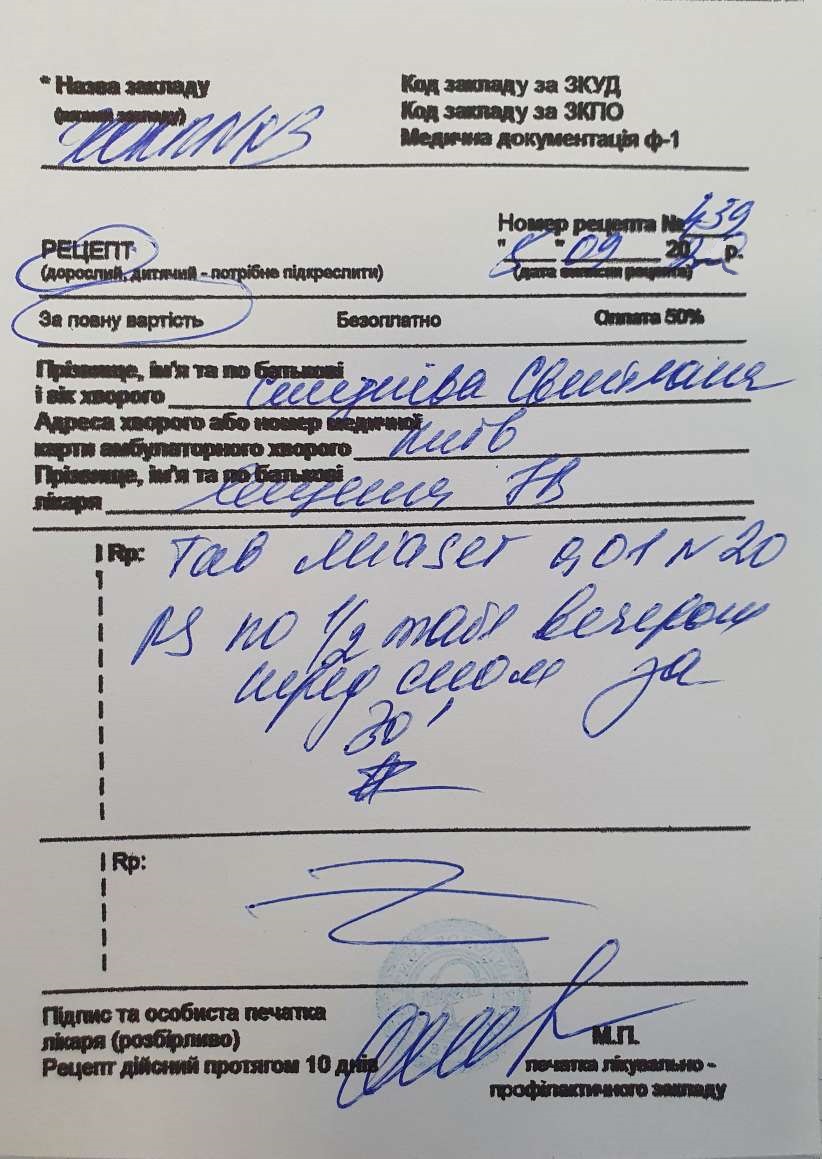 * Назва закладу
(штамп закладу)
Код закладу за ЗКУД
Код закладу за ЗКПО
Медична документація ф-1
Номер рецепта № 439
РЕЦЕПТ
(дорослий, дитячий - потрібне підкреслити)
" 09 20 р.
(дата виписки рецепта)
За повну вартість Безоплатно Оплата 50%
Прізвище, ім'я та по батькові
і вік хворого Світлана
Адреса хворого або номер медичної
карти амбулаторного хворого Київ
Прізвище, ім'я та по батькові
лікаря
Rp: Таб Miaser 0,01 N 20
по 1/2 таб вечером
перед сном за
30'
Rp:
Підпис та особиста печатка
лікаря (розбірливо)
Рецепт дійсний протягом 10 днів
М.П.
печатка лікувально -
профілактичного закладу